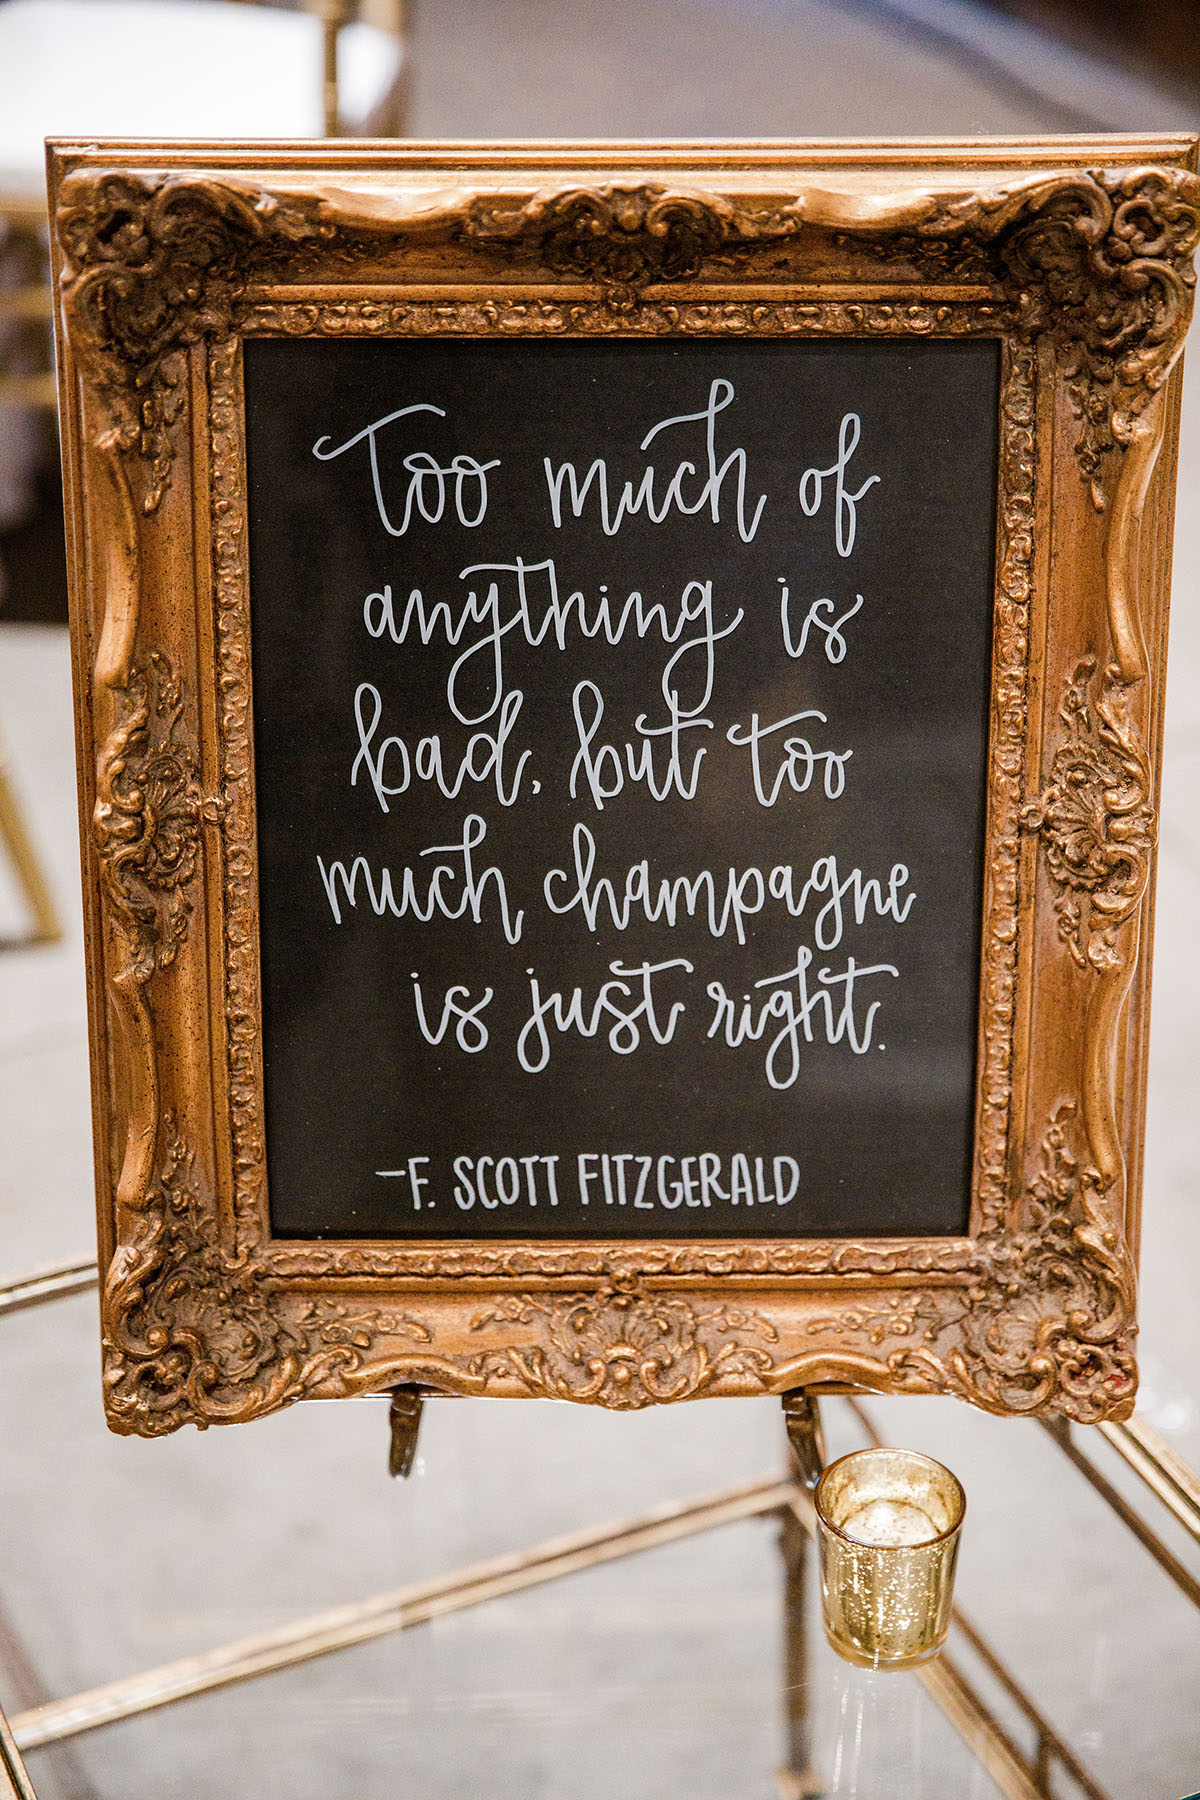 Too much of
anything is
bad, but too
much champagne
is just right.
-F. SCOTT FITZGERALD